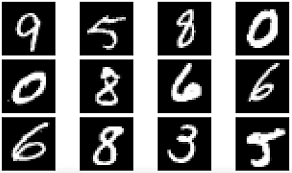 9 5 8 0
0 8 6 6
6 8 3 5